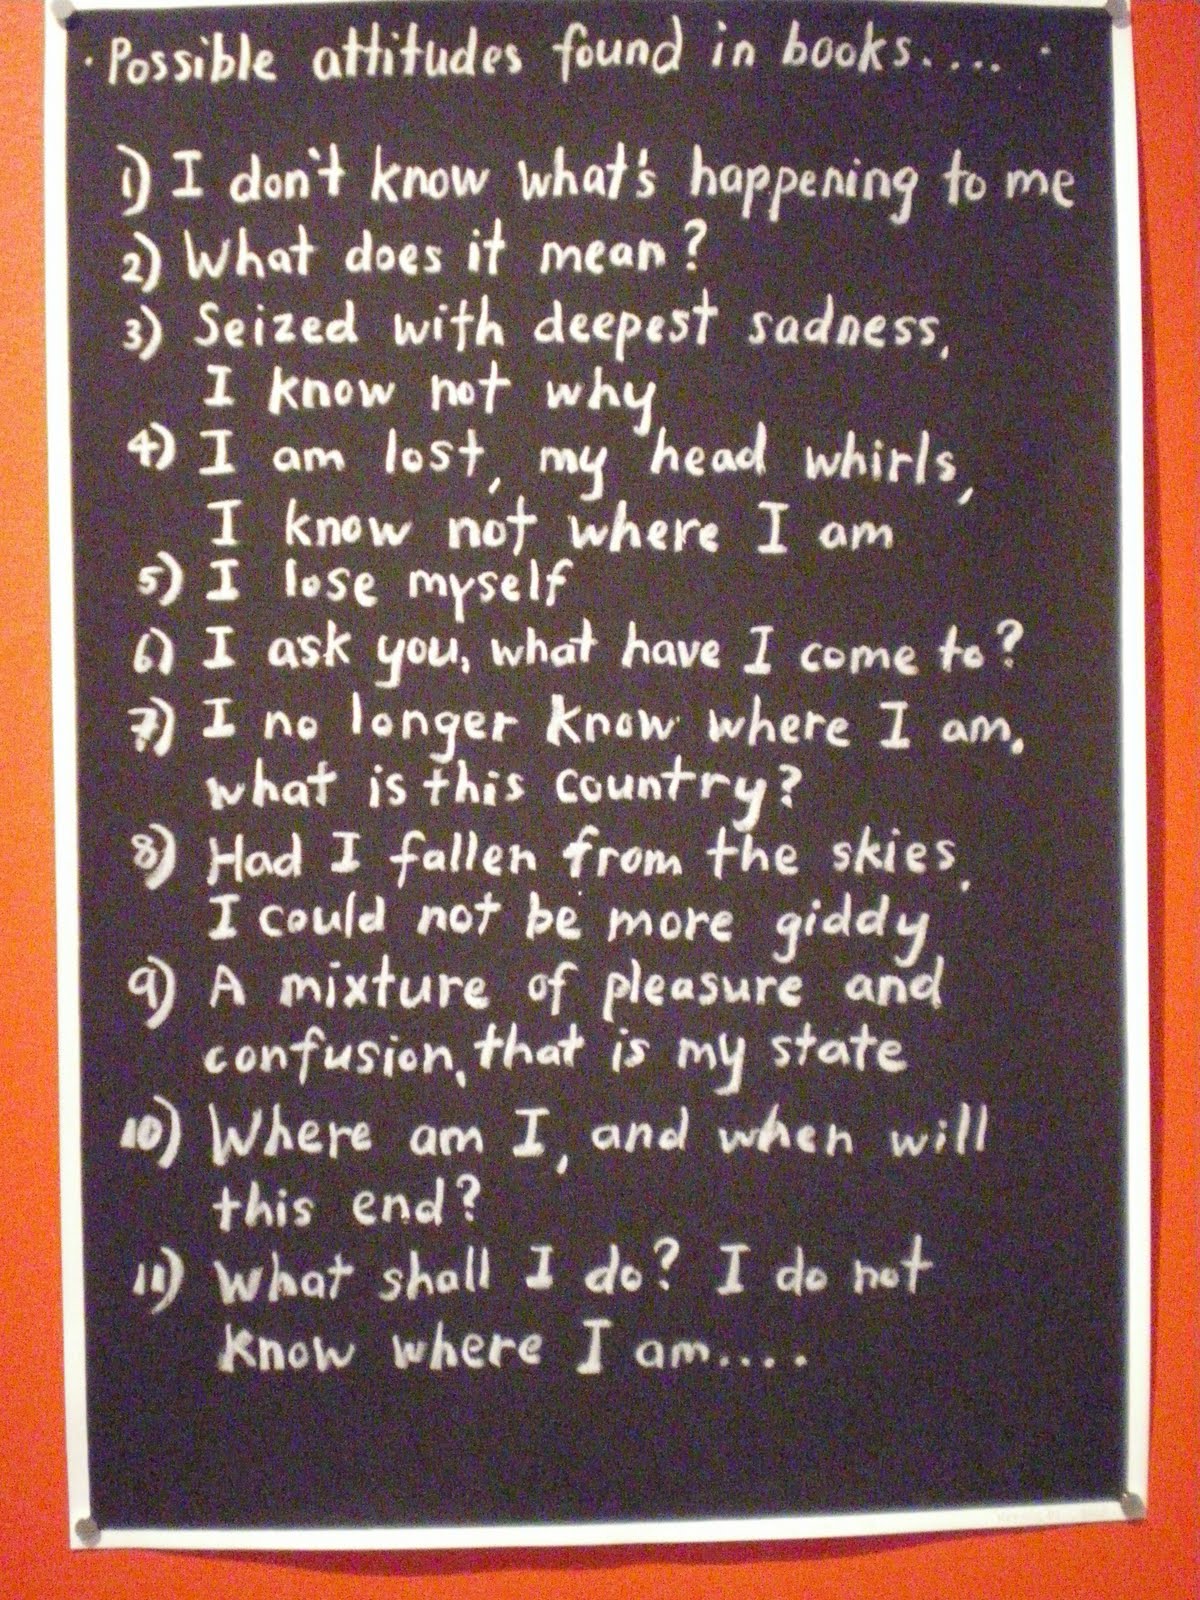 · Possible attitudes found in books.... ·
1) I don't know what's happening to me
2) What does it mean?
3) Seized with deepest sadness,
I know not why
4) I am lost, my head whirls,
I know not where I am
5) I lose myself
6) I ask you, what have I come to?
7) I no longer know where I am,
what is this country?
8) Had I fallen from the skies,
I could not be more giddy
9) A mixture of pleasure and
confusion, that is my state
10) Where am I, and when will
this end?
11) What shall I do? I do not
know where I am....